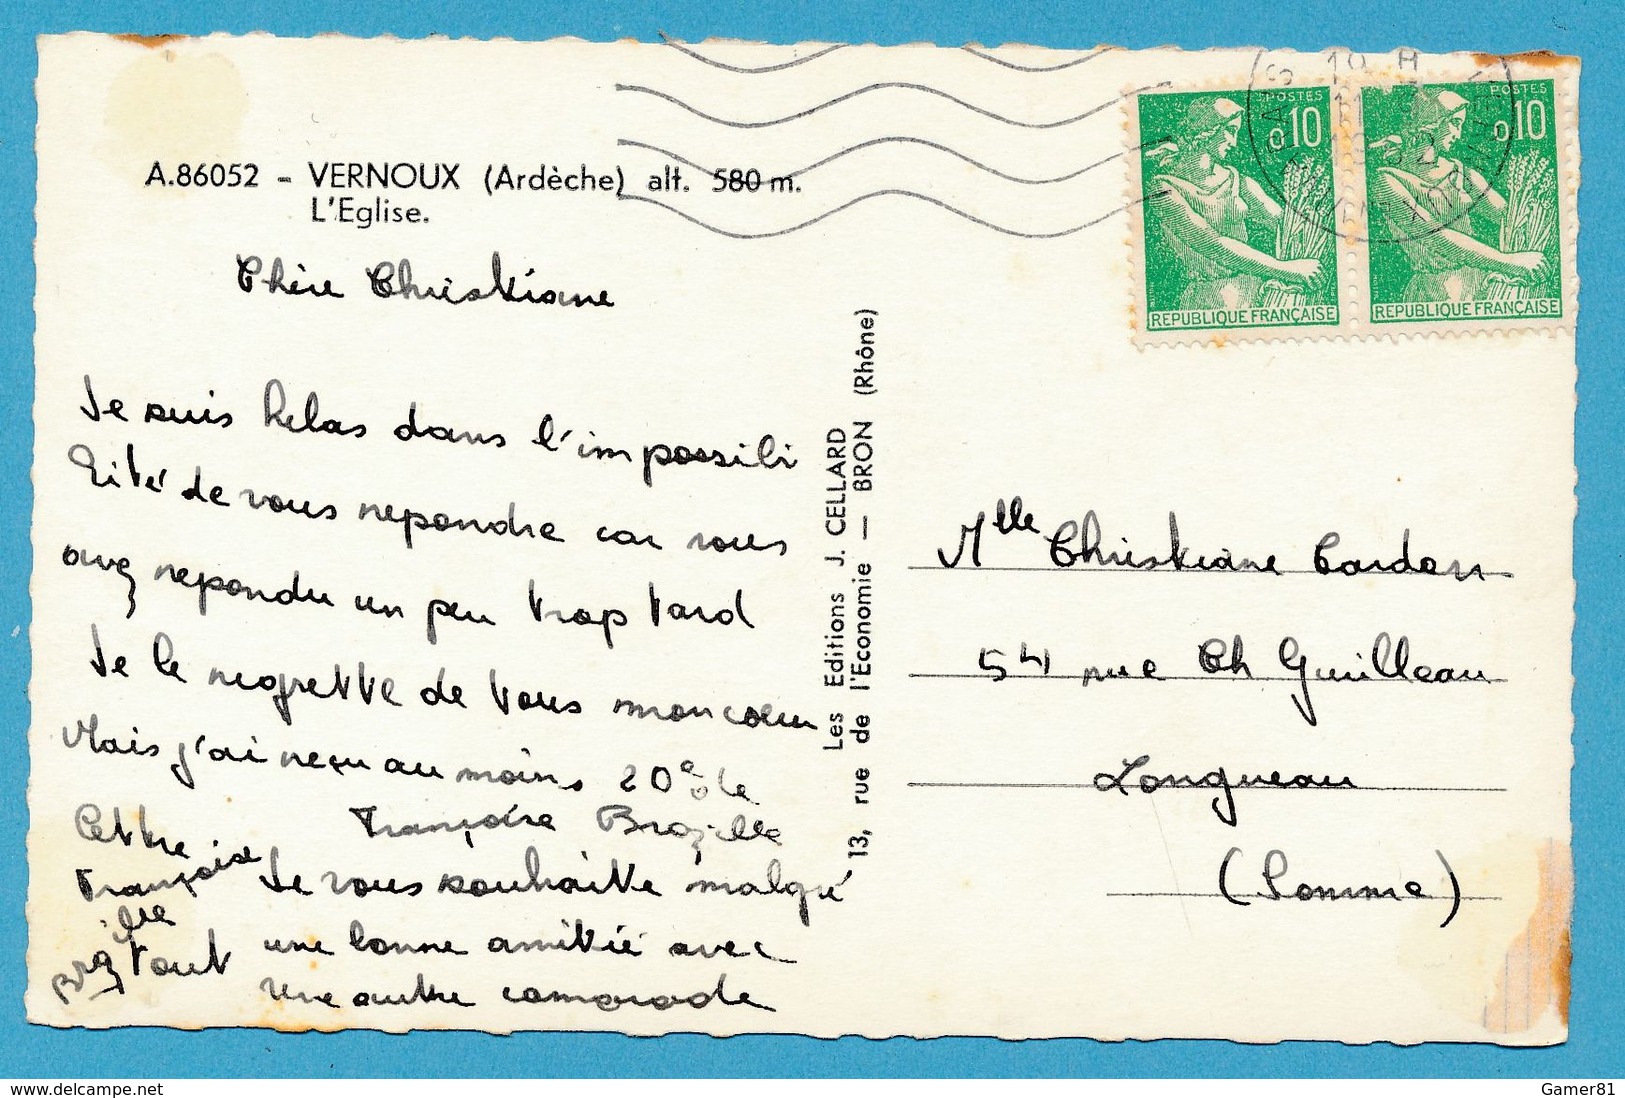 A.86052 - VERNOUX (Ardèche) alt. 580 m.
L'Eglise.
Chère Christiane
Je suis helas dans l'impossibi
lité de vous repondre car vous
avez repondu un peu trop tard
Je le regrette de tous mon coeur
Mais j'ai reçu au moins 20e de
lettre
Françoise Brazille
Françoise
Je vous souhaite malgré
tout une bonne amitié avec
une autre camarade
Les Editions J. CELLARD
13, rue de l'Economie — BRON (Rhône)
POSTES
0,10
REPUBLIQUE FRANÇAISE
POSTES
0,10
REPUBLIQUE FRANÇAISE
Mlle Christiane Cardon
54 rue Ch Guilleau
Longueau
(Somme)
www.delcampe.net
Gamer81